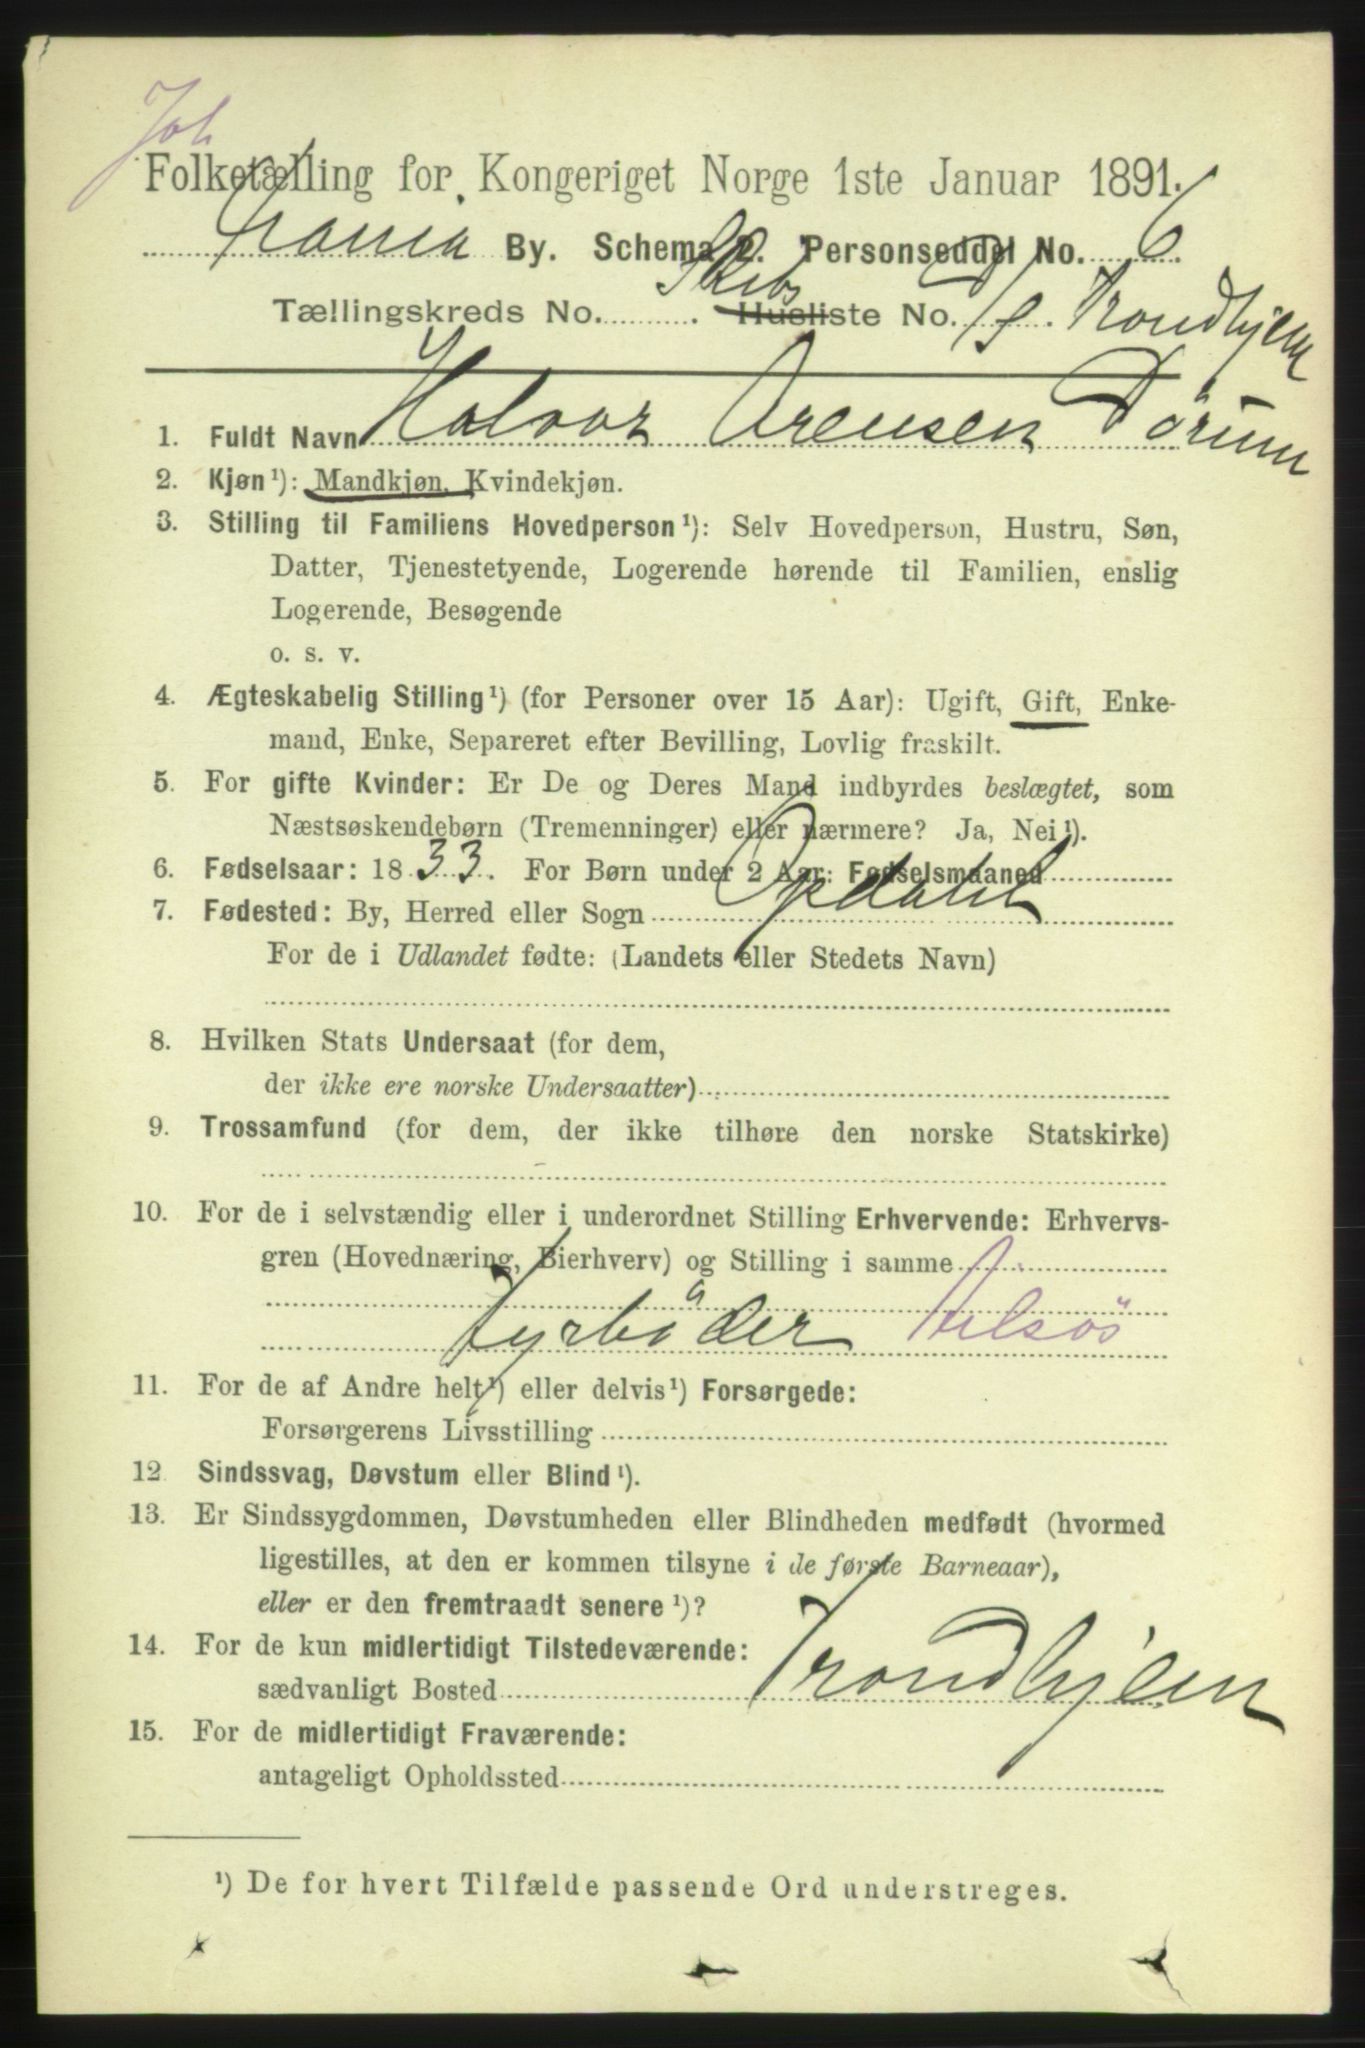 Joh
Folketælling for Kongeriget Norge 1ste Januar 1891.
By. Schema 2. Personseddel No. 6.
Skibs
Tællingskreds No. Husliste No. D/S. Trondhjem
1. Fuldt Navn Halvor Arensen Dørum
2. Kjøn¹): Mandkjøn. Kvindekjøn.
3. Stilling til Familiens Hovedperson¹): Selv Hovedperson, Hustru, Søn,
Datter, Tjenestetyende, Logerende hørende til Familien, enslig
Logerende, Besøgende
o. s. v.
4. Ægteskabelig Stilling¹) (for Personer over 15 Aar): Ugift, Gift, Enke-
mand, Enke, Separeret efter Bevilling, Lovlig fraskilt.
5. For gifte Kvinder: Er De og Deres Mand indbyrdes beslægtet, som
Næstsøskendebørn (Tremenninger) eller nærmere? Ja, Nei¹).
6. Fødselsaar: 1833. For Børn under 2 Aar: Fødselsmaaned
7. Fødested: By, Herred eller Sogn Opdahl
For de i Udlandet fødte: (Landets eller Stedets Navn)
8. Hvilken Stats Undersaat (for dem,
der ikke ere norske Undersaatter)
9. Trossamfund (for dem, der ikke tilhøre den norske Statskirke)
10. For de i selvstændig eller i underordnet Stilling Erhvervende: Erhvervs-
gren (Hovednæring, Bierhverv) og Stilling i samme
Fyrböder
11. For de af Andre helt¹) eller delvis¹) Forsørgede:
Forsørgerens Livsstilling
12 Sindssvag, Døvstum eller Blind¹).
13. Er Sindssygdommen, Døvstumheden eller Blindheden medfødt (hvormed
ligestilles, at den er kommen tilsyne i de første Barneaar),
eller er den fremtraadt senere¹)?
14. For de kun midlertidigt Tilstedeværende:
sædvanligt Bosted Trondhjem
15. For de midlertidigt Fraværende:
antageligt Opholdssted
¹) De for hvert Tilfælde passende Ord understreges.